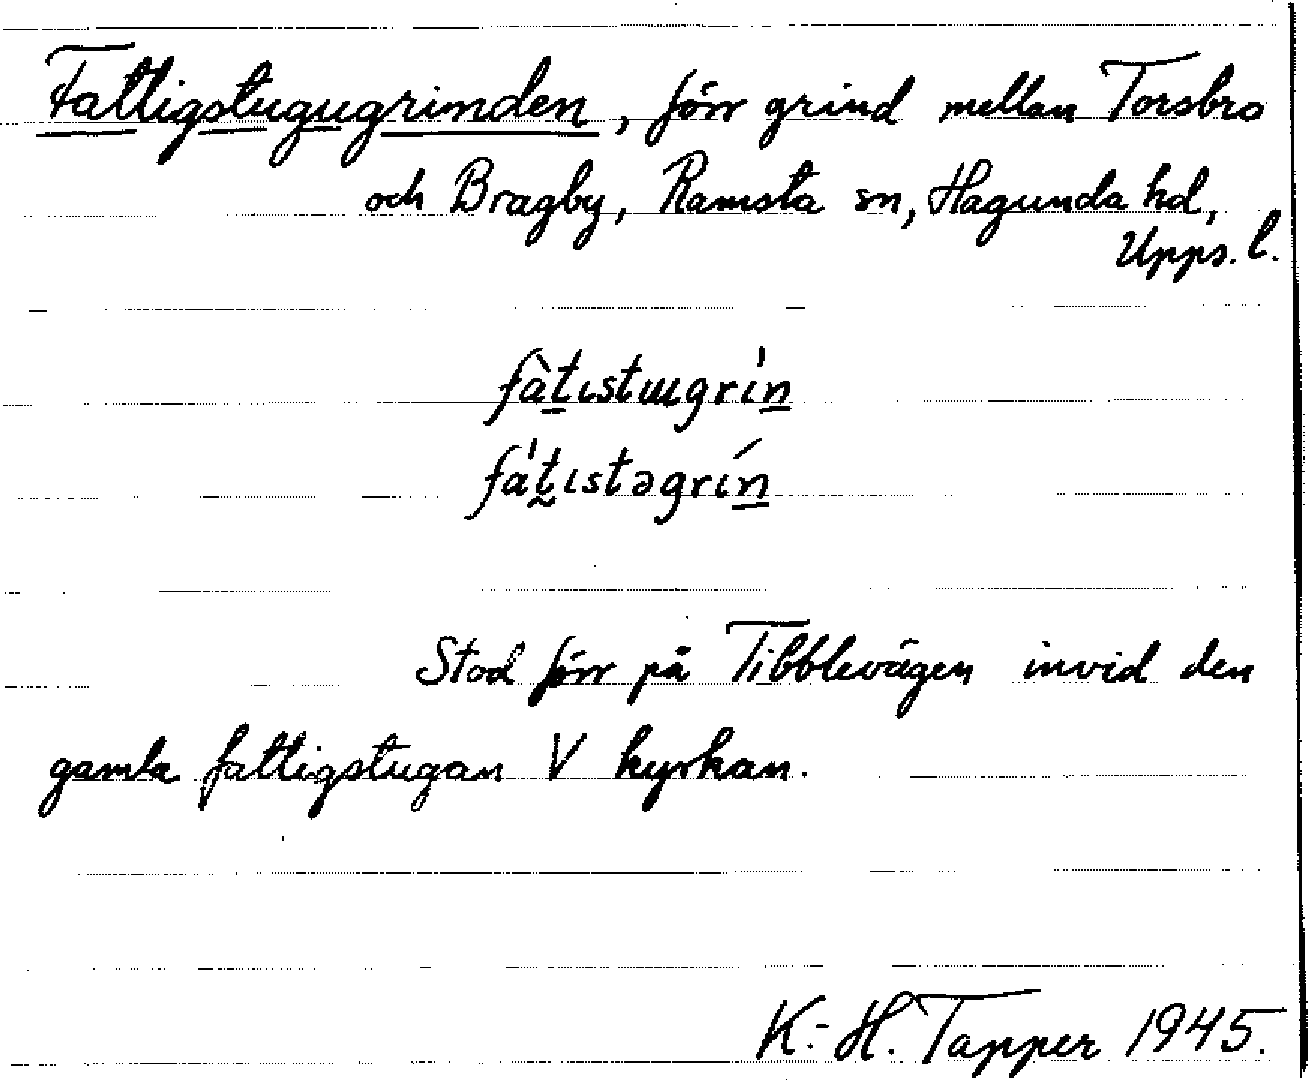 Fattigstugugrinden, förr grind mellan Torsbro
och Bragby, Ramsta sn, Hagunda hd,
Upps. l.
fàt̲ɩstɯgrɩ́n̲
fát̰ɩstəgrɩ́n̲
Stod förr på Tibblevägen invid den
gamla fattigstugan V kyrkan.
K.-H. Tapper 1945.